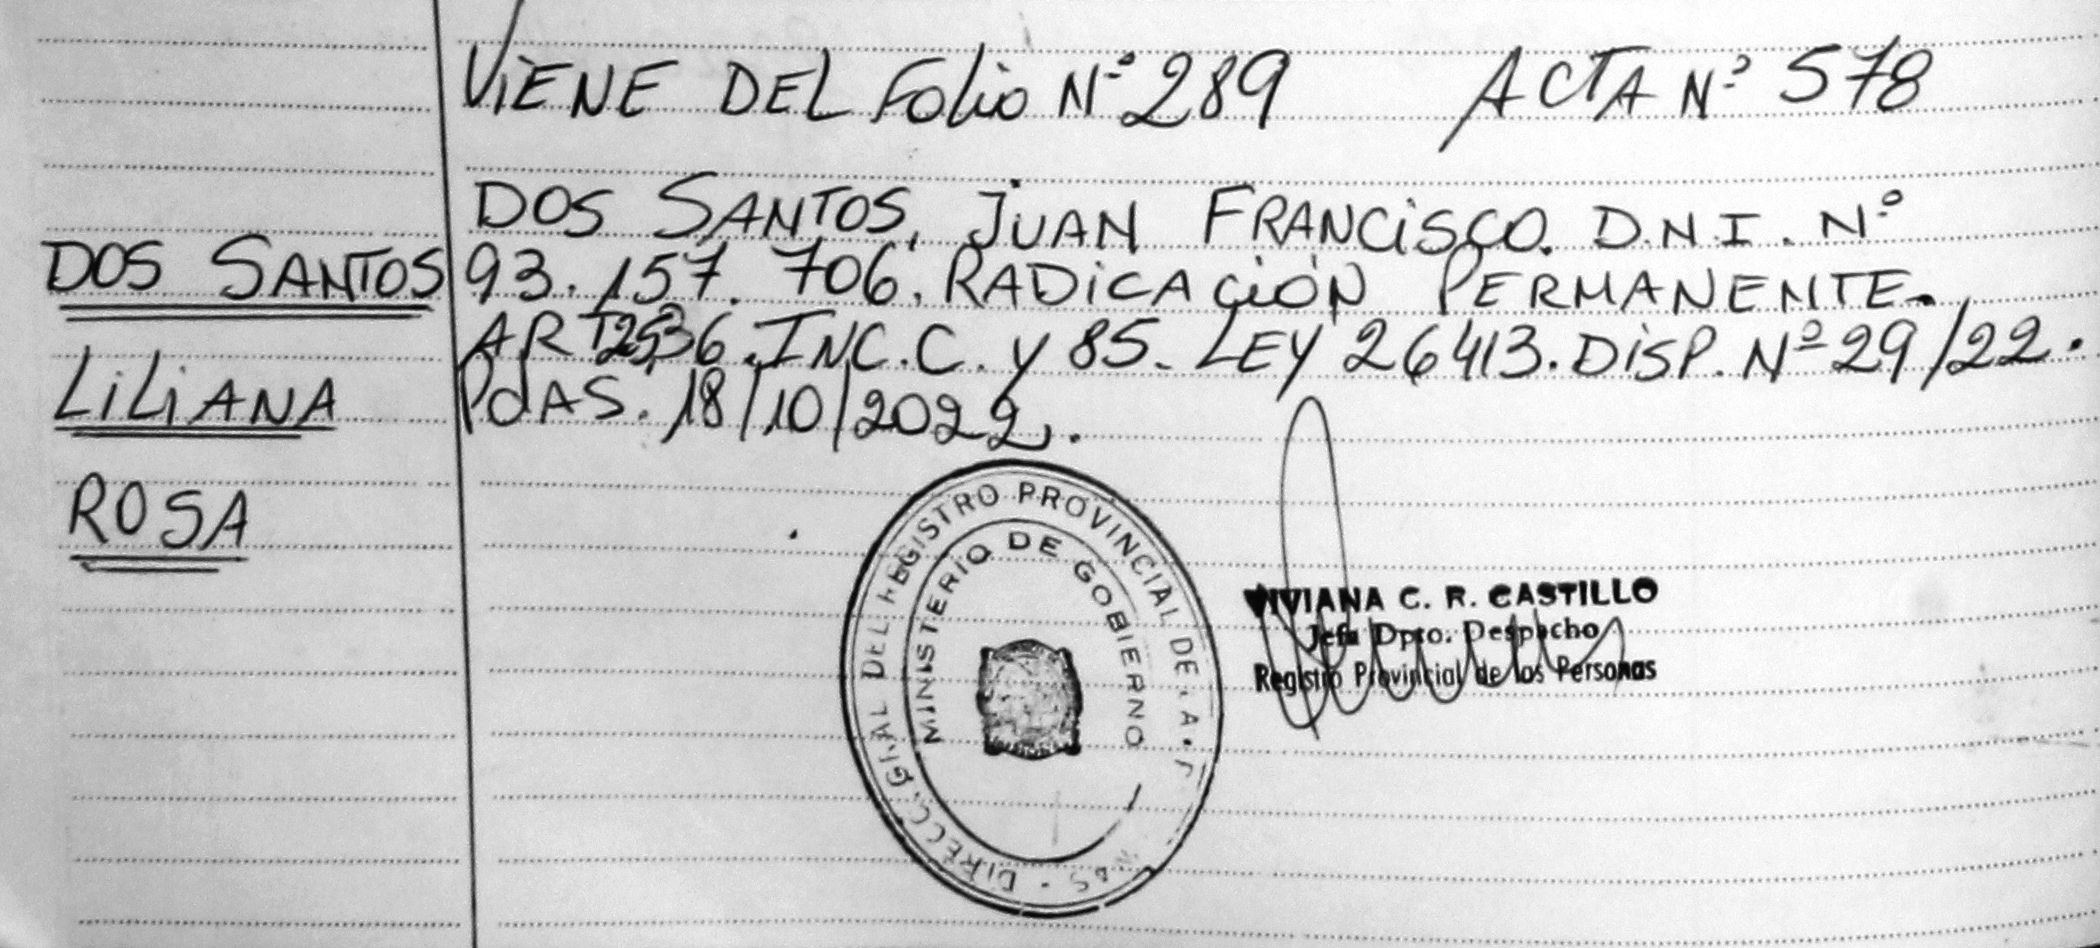 VIENE DEL FOLIO Nº 289 ACTA Nº 578
DOS SANTOS, JUAN FRANCISCO. D.N.I. Nº
93.157.706. RADICACIÓN PERMANENTE.
INC. C. y 85. LEY 26413. DISP. Nº 29/22.
PdAS. 18/10/2022.
DOS SANTOS
LILIANA
ROSA
DIRECC. GRAL DEL REGISTRO PROVINCIAL DE
MINISTERIO DE GOBIERNO
VIVIANA C. R. CASTILLO
Jefa Dpto. Despacho
Registro Provincial de los Personas